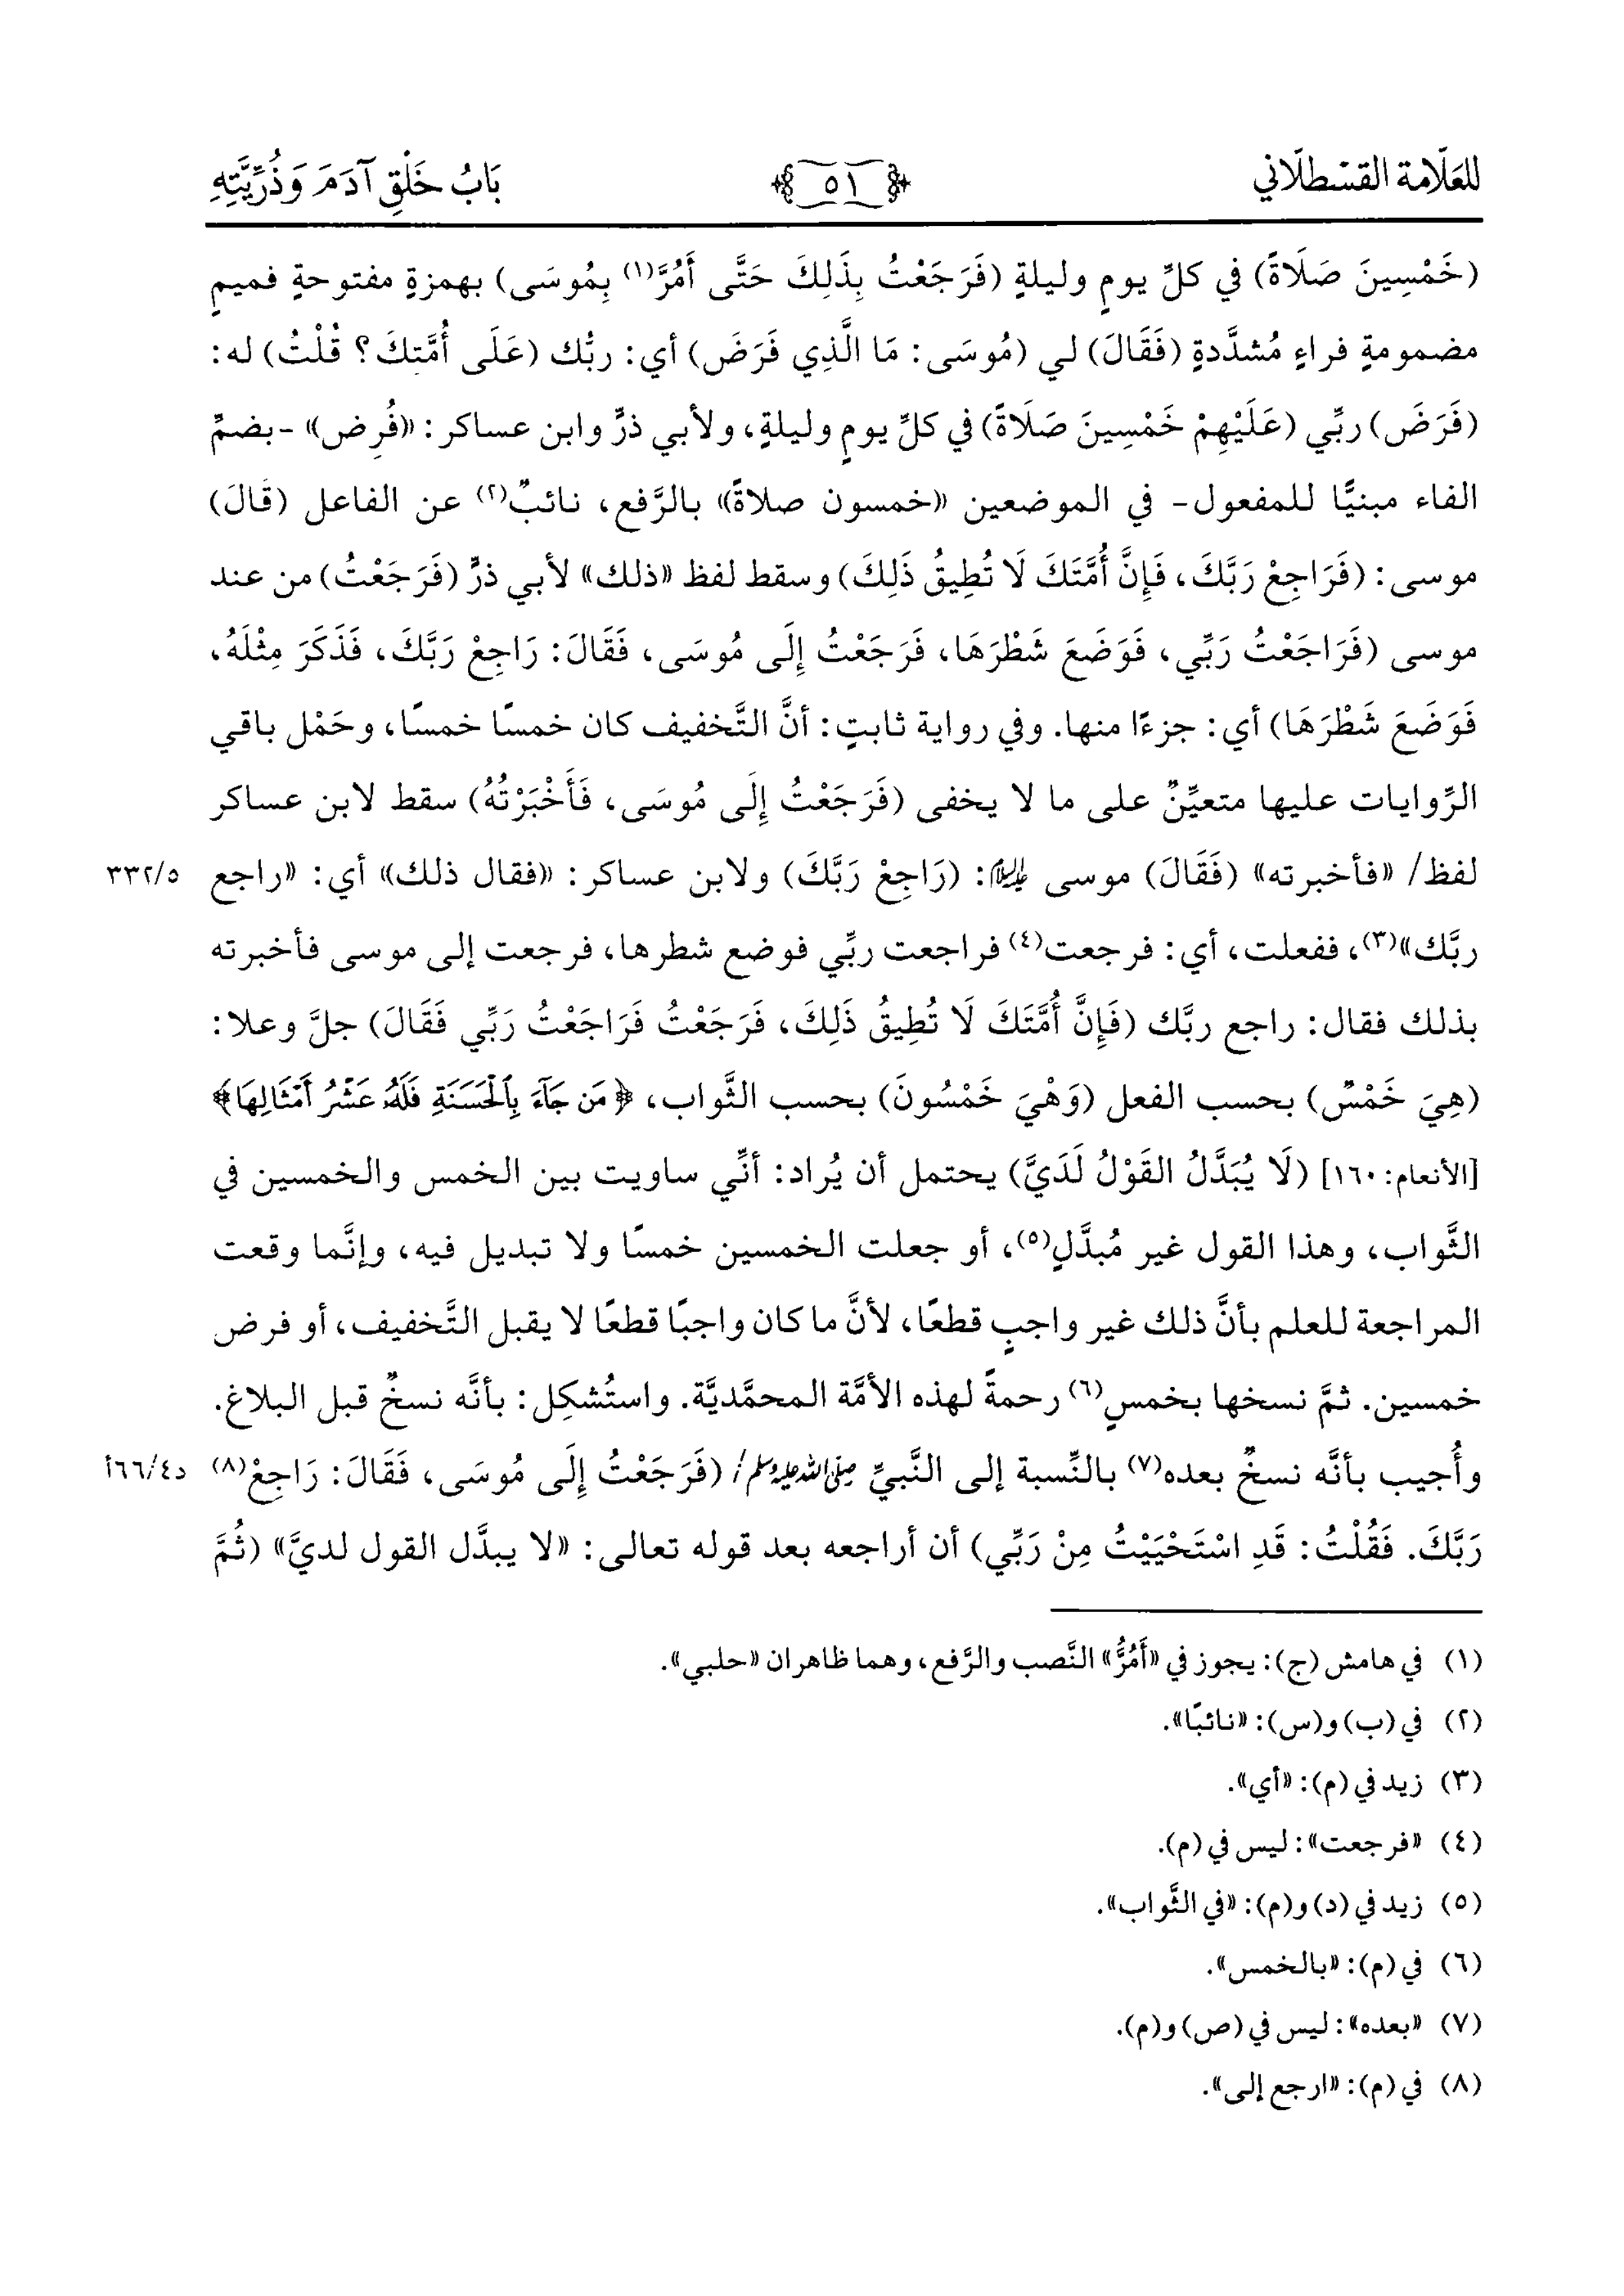 للعلامة القسطلاني ٥١ بَابُ خَلْقِ آدَمَ وَذُرِّيَّتِهِ
(خَمْسِينَ صَلَاةً) في كلِّ يومٍ وليلةٍ (فَرَجَعْتُ بِذَلِكَ حَتَّى أَمُرَّ(١) بِمُوسَى) بهمزةٍ مفتوحةٍ فميمٍ
مضمومةٍ فراءٍ مُشدَّدةٍ (فَقَالَ) لي (مُوسَى: مَا الَّذِي فَرَضَ) أي: ربُّك (عَلَى أُمَّتِكَ؟ قُلْتُ) له:
(فَرَضَ) ربِّي (عَلَيْهِمْ خَمْسِينَ صَلَاةً) في كلِّ يومٍ وليلةٍ، ولأبي ذرٍّ وابن عساكر: «فُرِض» -بضمِّ
الفاء مبنيًّا للمفعول- في الموضعين «خمسون صلاةً» بالرَّفع، نائبٌ(٢) عن الفاعل (قَالَ)
موسى: (فَرَاجِعْ رَبَّكَ، فَإِنَّ أُمَّتَكَ لَا تُطِيقُ ذَلِكَ) وسقط لفظ «ذلك» لأبي ذرٍّ (فَرَجَعْتُ) من عند
موسى (فَرَاجَعْتُ رَبِّي، فَوَضَعَ شَطْرَهَا، فَرَجَعْتُ إِلَى مُوسَى، فَقَالَ: رَاجِعْ رَبَّكَ، فَذَكَرَ مِثْلَهُ،
فَوَضَعَ شَطْرَهَا) أي: جزءًا منها. وفي رواية ثابتٍ: أنَّ التَّخفيف كان خمسًا خمسًا، وحَمْل باقي
الرِّوايات عليها متعيِّنٌ على ما لا يخفى (فَرَجَعْتُ إِلَى مُوسَى، فَأَخْبَرْتُهُ) سقط لابن عساكر
لفظ/ «فأخبرته» (فَقَالَ) موسى ﵇: (رَاجِعْ رَبَّكَ) ولابن عساكر: «فقال ذلك» أي: «راجع ٣٣٢/٥
ربَّك»(٣)، ففعلت، أي: فرجعت(٤) فراجعت ربِّي فوضع شطرها، فرجعت إلى موسى فأخبرته
بذلك فقال: راجع ربَّك (فَإِنَّ أُمَّتَكَ لَا تُطِيقُ ذَلِكَ، فَرَجَعْتُ فَرَاجَعْتُ رَبِّي فَقَالَ) جلَّ وعلا:
(هِيَ خَمْسٌ) بحسب الفعل (وَهْيَ خَمْسُونَ) بحسب الثَّواب، ﴿مَن جَآءَ بِٱلْحَسَنَةِ فَلَهُۥ عَشْرُ أَمْثَالِهَا﴾
[الأنعام: ١٦٠] (لَا يُبَدَّلُ القَوْلُ لَدَيَّ) يحتمل أن يُراد: أنِّي ساويت بين الخمس والخمسين في
الثَّواب، وهذا القول غير مُبدَّلٍ(٥)، أو جعلت الخمسين خمسًا ولا تبديل فيه، وإنَّما وقعت
المراجعة للعلم بأنَّ ذلك غير واجبٍ قطعًا، لأنَّ ما كان واجبًا قطعًا لا يقبل التَّخفيف، أو فرض
خمسين. ثمَّ نسخها بخمسٍ(٦) رحمةً لهذه الأمَّة المحمَّديَّة. واستُشكِل: بأنَّه نسخٌ قبل البلاغ.
وأُجيب بأنَّه نسخٌ بعده(٧) بالنِّسبة إلى النَّبيِّ صلى الله عليه وسلم/ (فَرَجَعْتُ إِلَى مُوسَى، فَقَالَ: رَاجِعْ(٨) د٦٦/٤أ
رَبَّكَ. فَقُلْتُ: قَدِ اسْتَحْيَيْتُ مِنْ رَبِّي) أن أراجعه بعد قوله تعالى: «لا يبدَّل القول لديَّ» (ثُمَّ
(١) في هامش (ج): يجوز في «أَمُرُّ» النَّصب والرَّفع، وهما ظاهران «حلبي».
(٢) في (ب) و(س): «نائبًا».
(٣) زيد في (م): «أي».
(٤) «فرجعت»: ليس في (م).
(٥) زيد في (د) و(م): «في الثَّواب».
(٦) في (م): «بالخمس».
(٧) «بعده»: ليس في (ص) و(م).
(٨) في (م): «ارجع إلى».